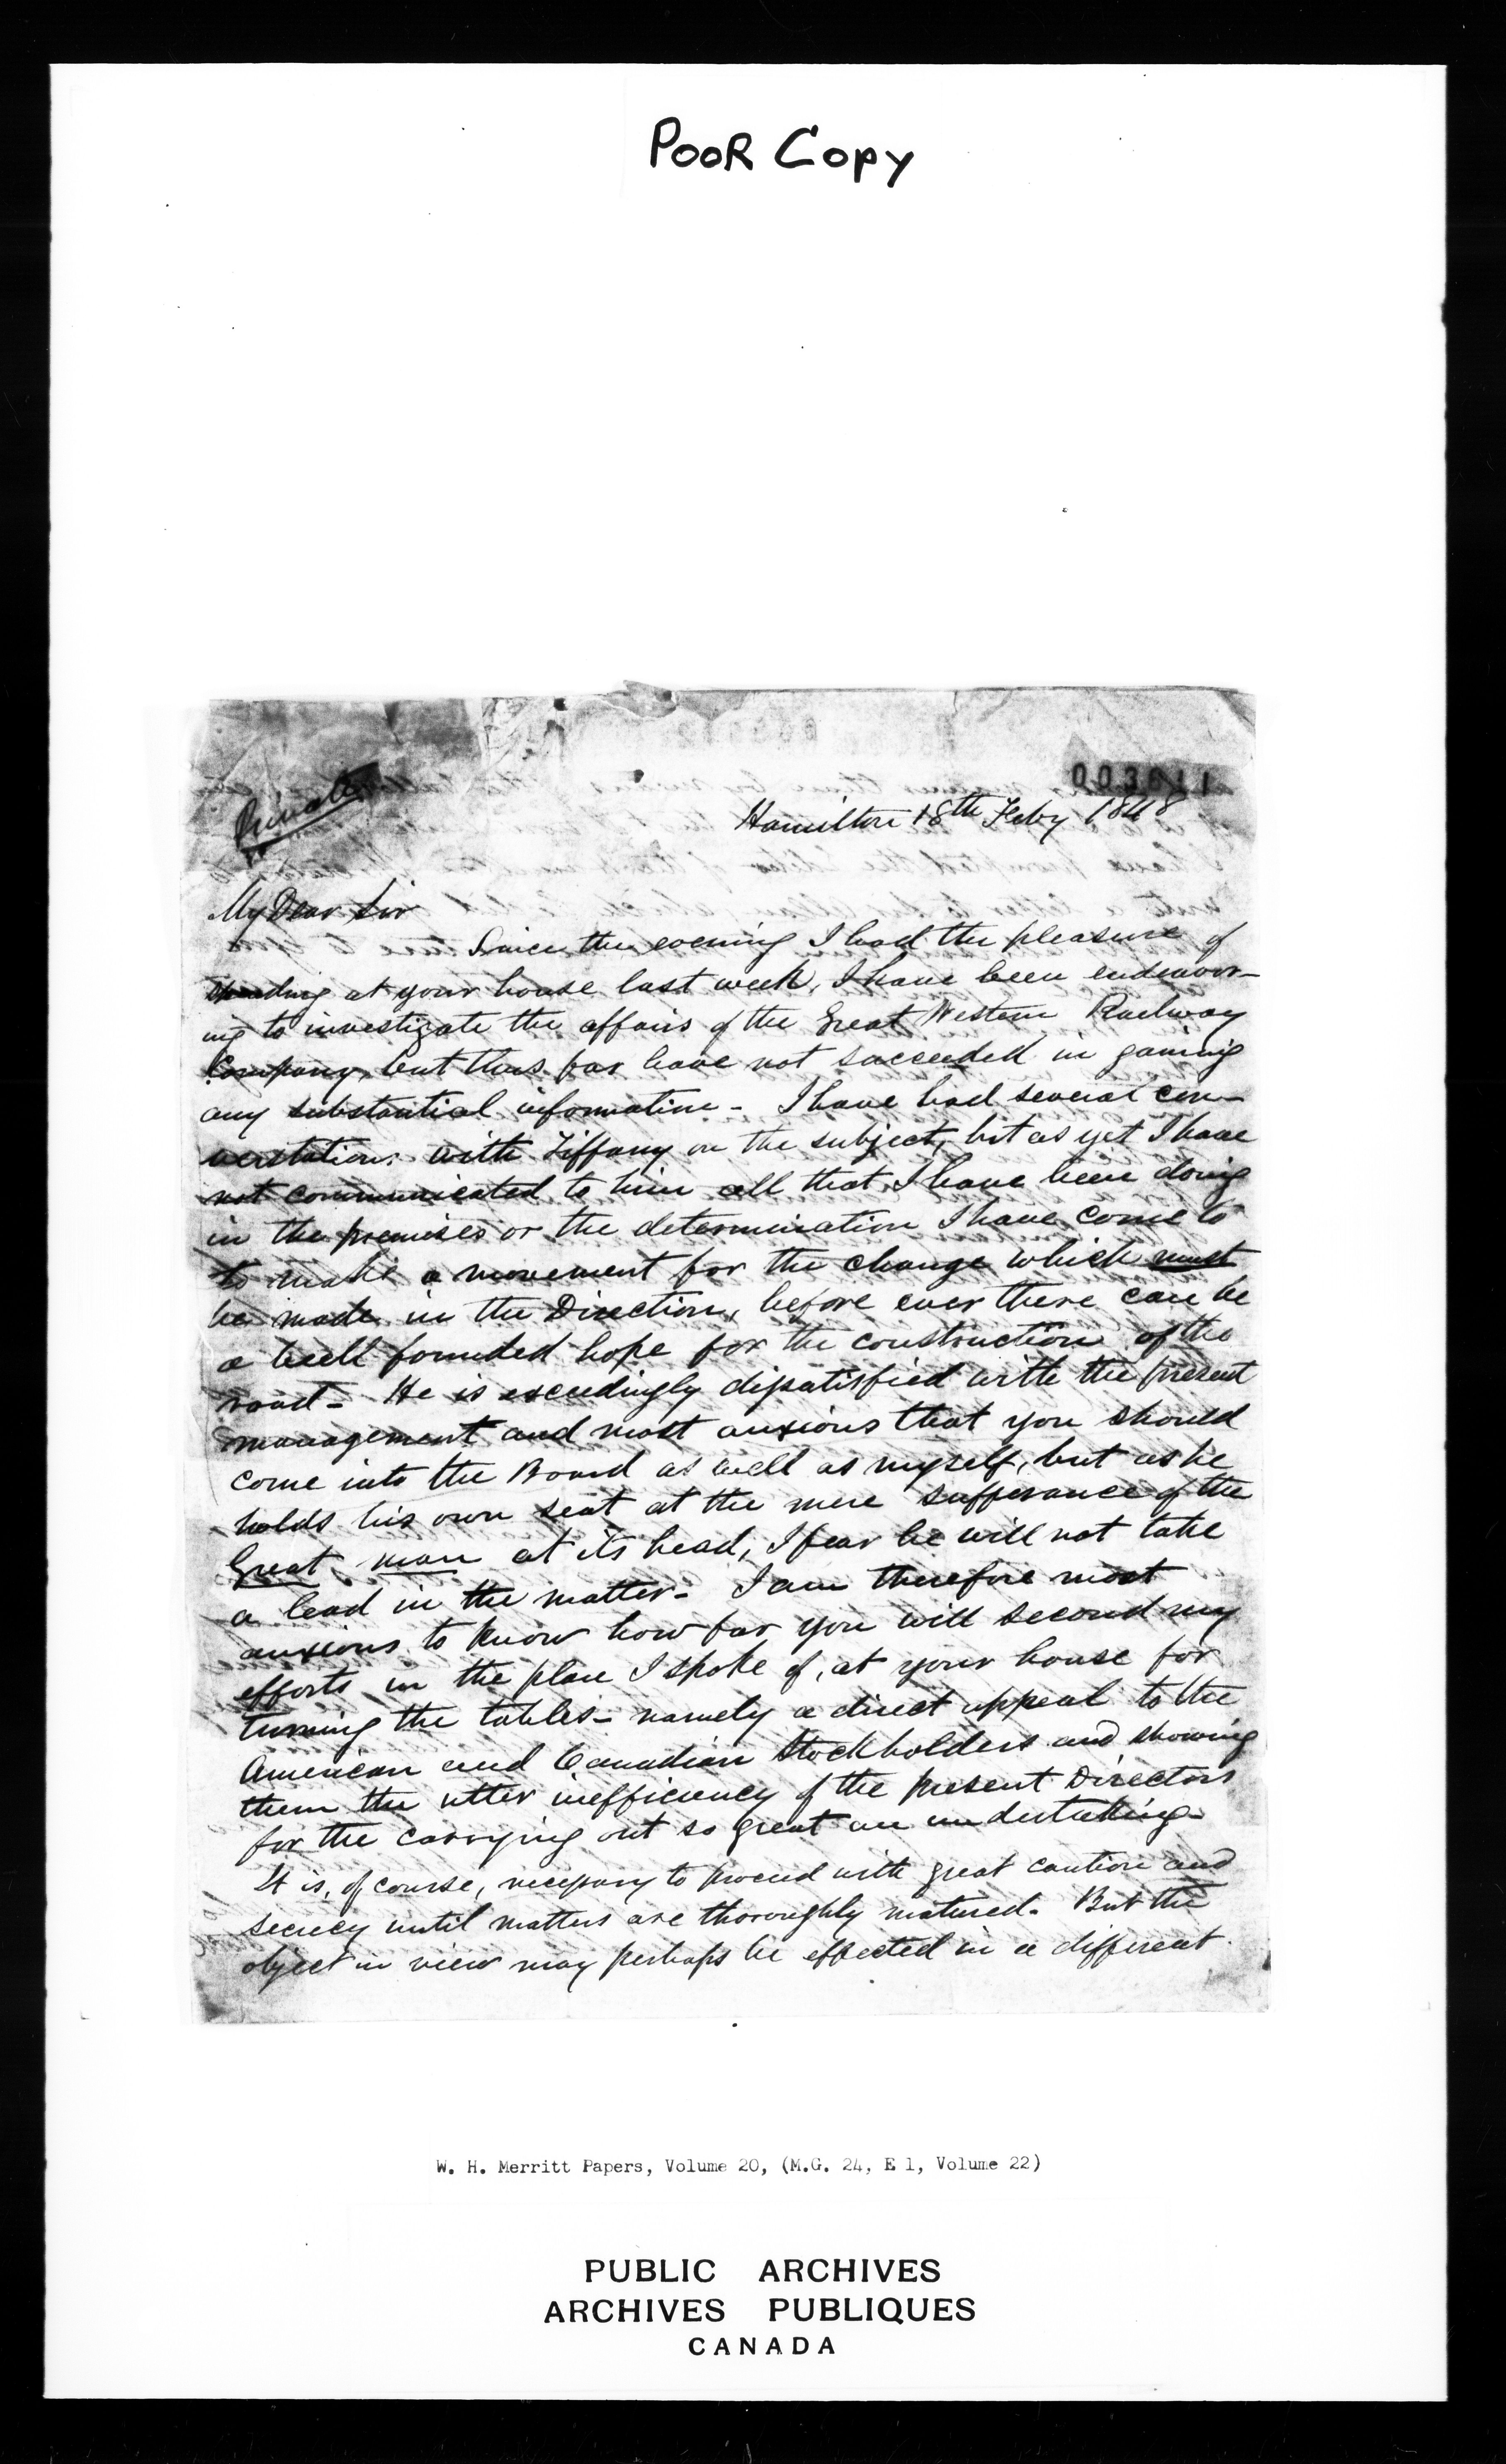 POOR COPY
003611
Private
Hamilton 18th Feby 1848
My Dear Sir
Since the evening I had the pleasure of
spending at your house last week, I have been endeavor-
ing to investigate the affairs of the Great Western Railway
Company, but thus far have not succeeded in gaining
any substantial information - I have had several con-
verstations with Tiffany on the subject, but as yet I have
not communicated to him all that I have been doing
in the premises or the determination I have come to
to make a movement for the change which must
be made in the Direction, before ever there can be
a well founded hope for the construction of the
road - He is exceedingly dissatisfied with the present
management and most anxious that you should
come into the Board as well as myself, but as he
holds his own seat at the mere sufferance of the
Great man at its head, I fear he will not take
a lead in the matter - I am therefore most
anxious to know how far you will second my
efforts in the plan I spoke of, at your house for
turning the tables - namely a direct appeal to the
American and Canadian Stockholders and showing
them the utter inefficiency of the present Directors
for the carrying out so great an undertaking -
It is, of course, necessary to proceed with great caution and
secrecy until matters are thoroughly matured. But the
object in view may perhaps be effected in a different
W. H. Merritt Papers, Volume 20, (M.G. 24, E 1, Volume 22)
PUBLIC ARCHIVES
ARCHIVES PUBLIQUES
CANADA